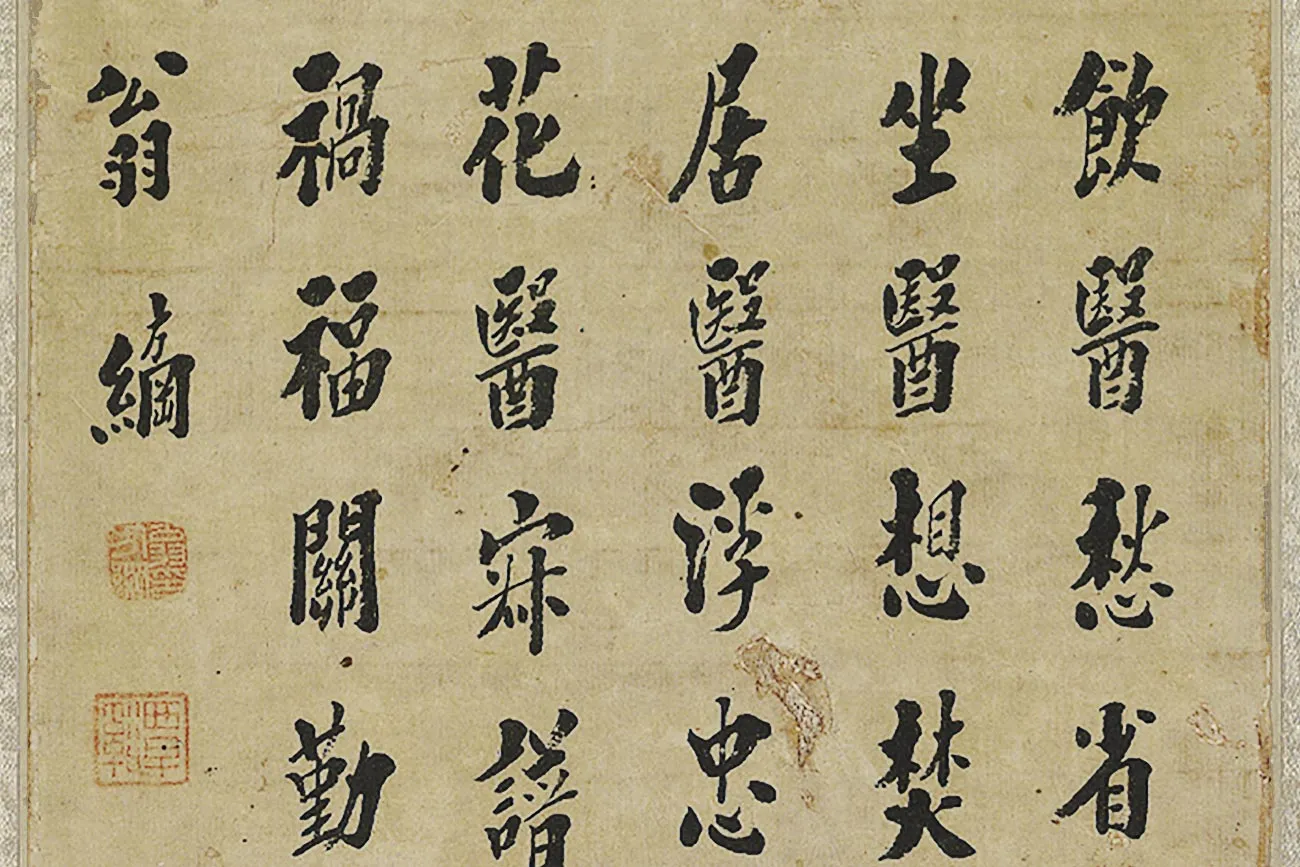 飲醫愁省
坐醫想焚
居醫浮忠
花醫寂
禍福關勤
翁方綱